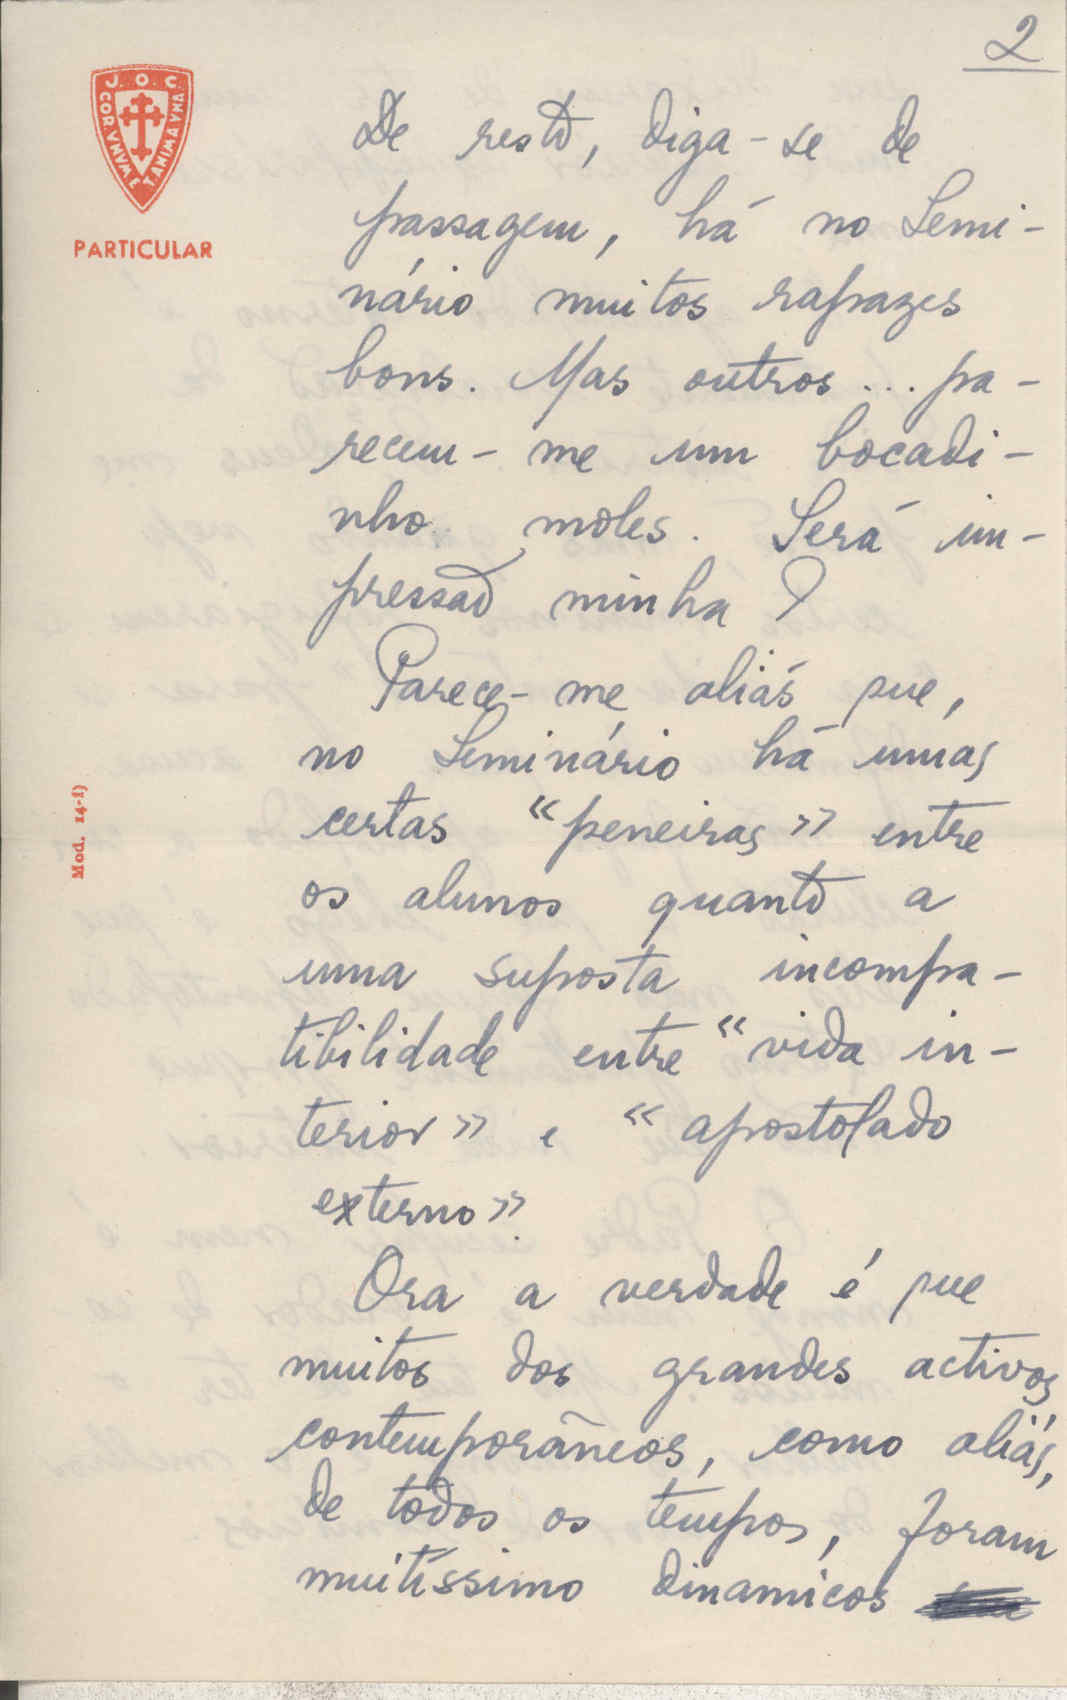 2
J. O. C.
COR VNVM ET ANIMA VNA
PARTICULAR
De resto, diga-se de
passagem, há no Semi-
nário muitos rapazes
bons. Mas outros... pa-
recem-me um bocadi-
nho moles. Será im-
pressão minha?
Parece-me aliás que,
no Seminário há umas
certas "peneiras" entre
os alunos quanto a
uma suposta incompa-
tibilidade entre "vida in-
terior" e "apostolado
externo"
Ora a verdade é que
muitos dos grandes activos
contemporâneos, como aliás,
de todos os tempos, foram
muitíssimo dinamicos
Mod. 14-f)